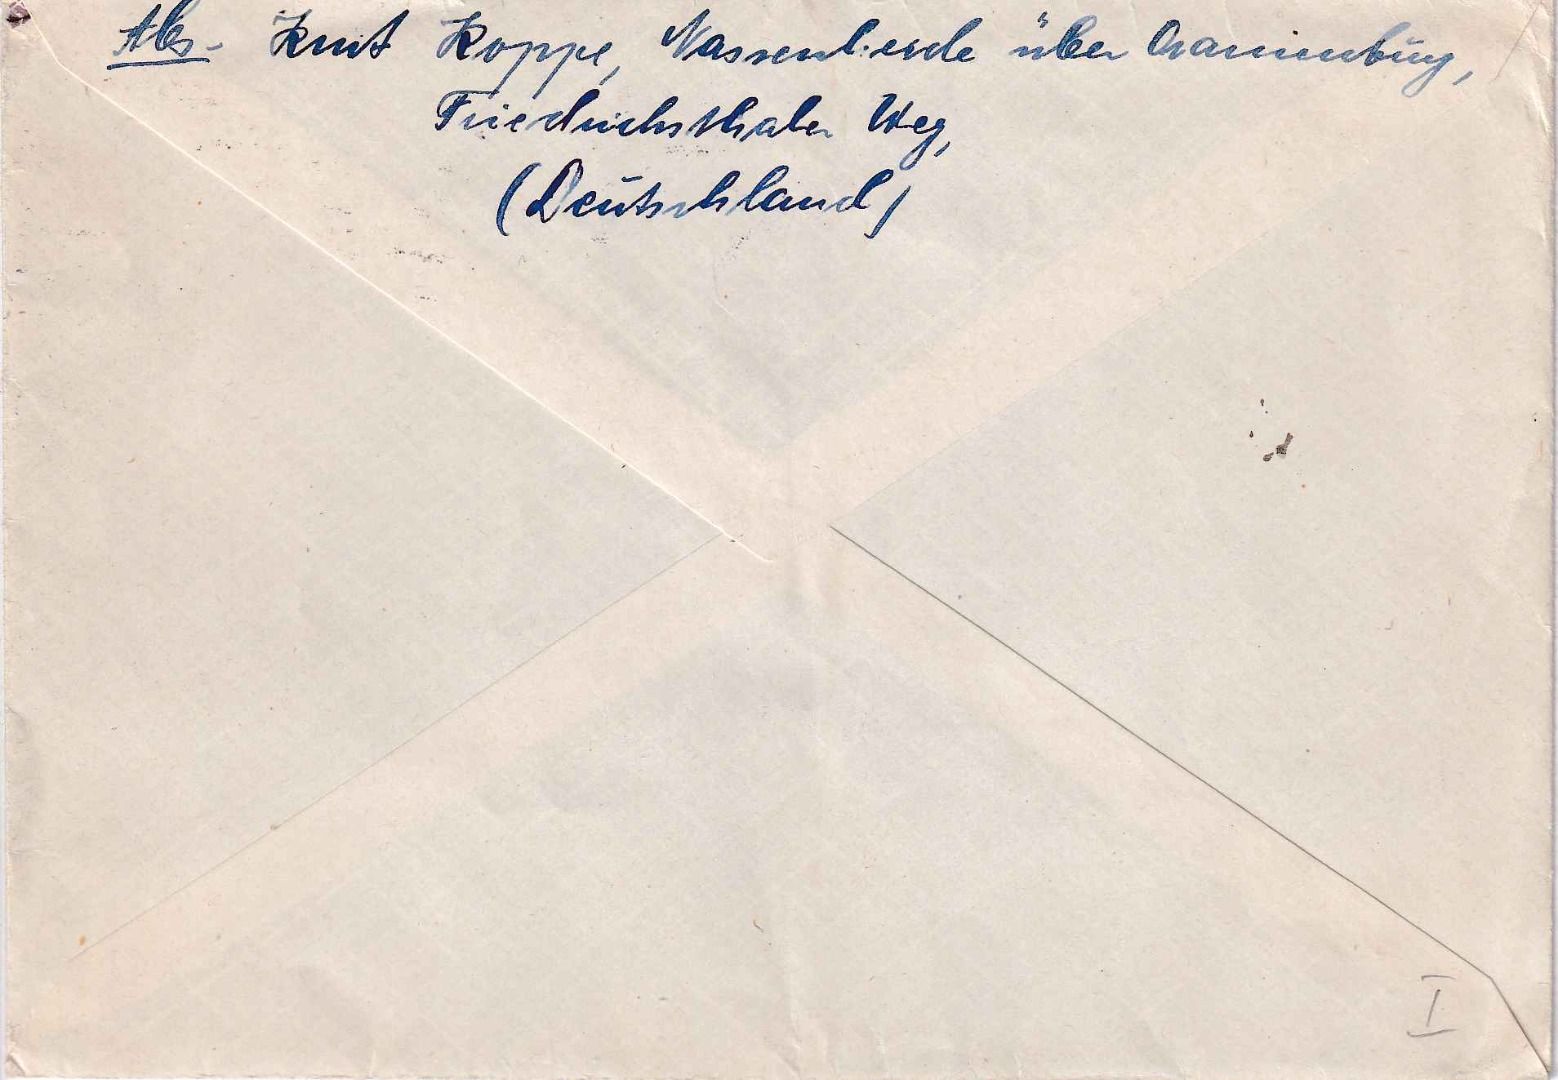 Abs. Kurt Koppe, Nassenheide über Oranienburg,
Friedrichsthaler Weg,
(Deutschland)
I